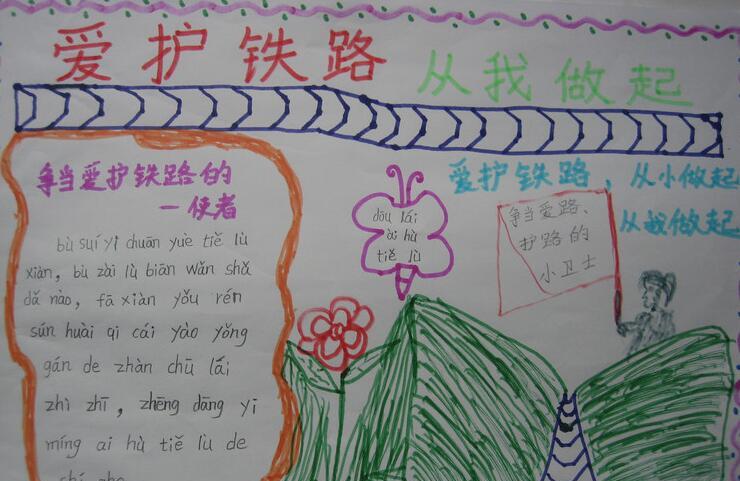 爱护铁路 从我做起
争当爱护铁路的
一使者
bù suí yì chuān yuè tiě lù
xiàn, bù zài lù biān wǎn shǎ
dǎ nào, fā xiàn yǒu rén
sún huài qi cái yào yǒng
gán de zhàn chū lái
zhì zhī, zhēng dāng yī
míng ai hù tiě lù de
dōu lái
ài hù
tiě lù
爱护铁路，从小做起
从我做起
争当爱路、
护路的
小卫士